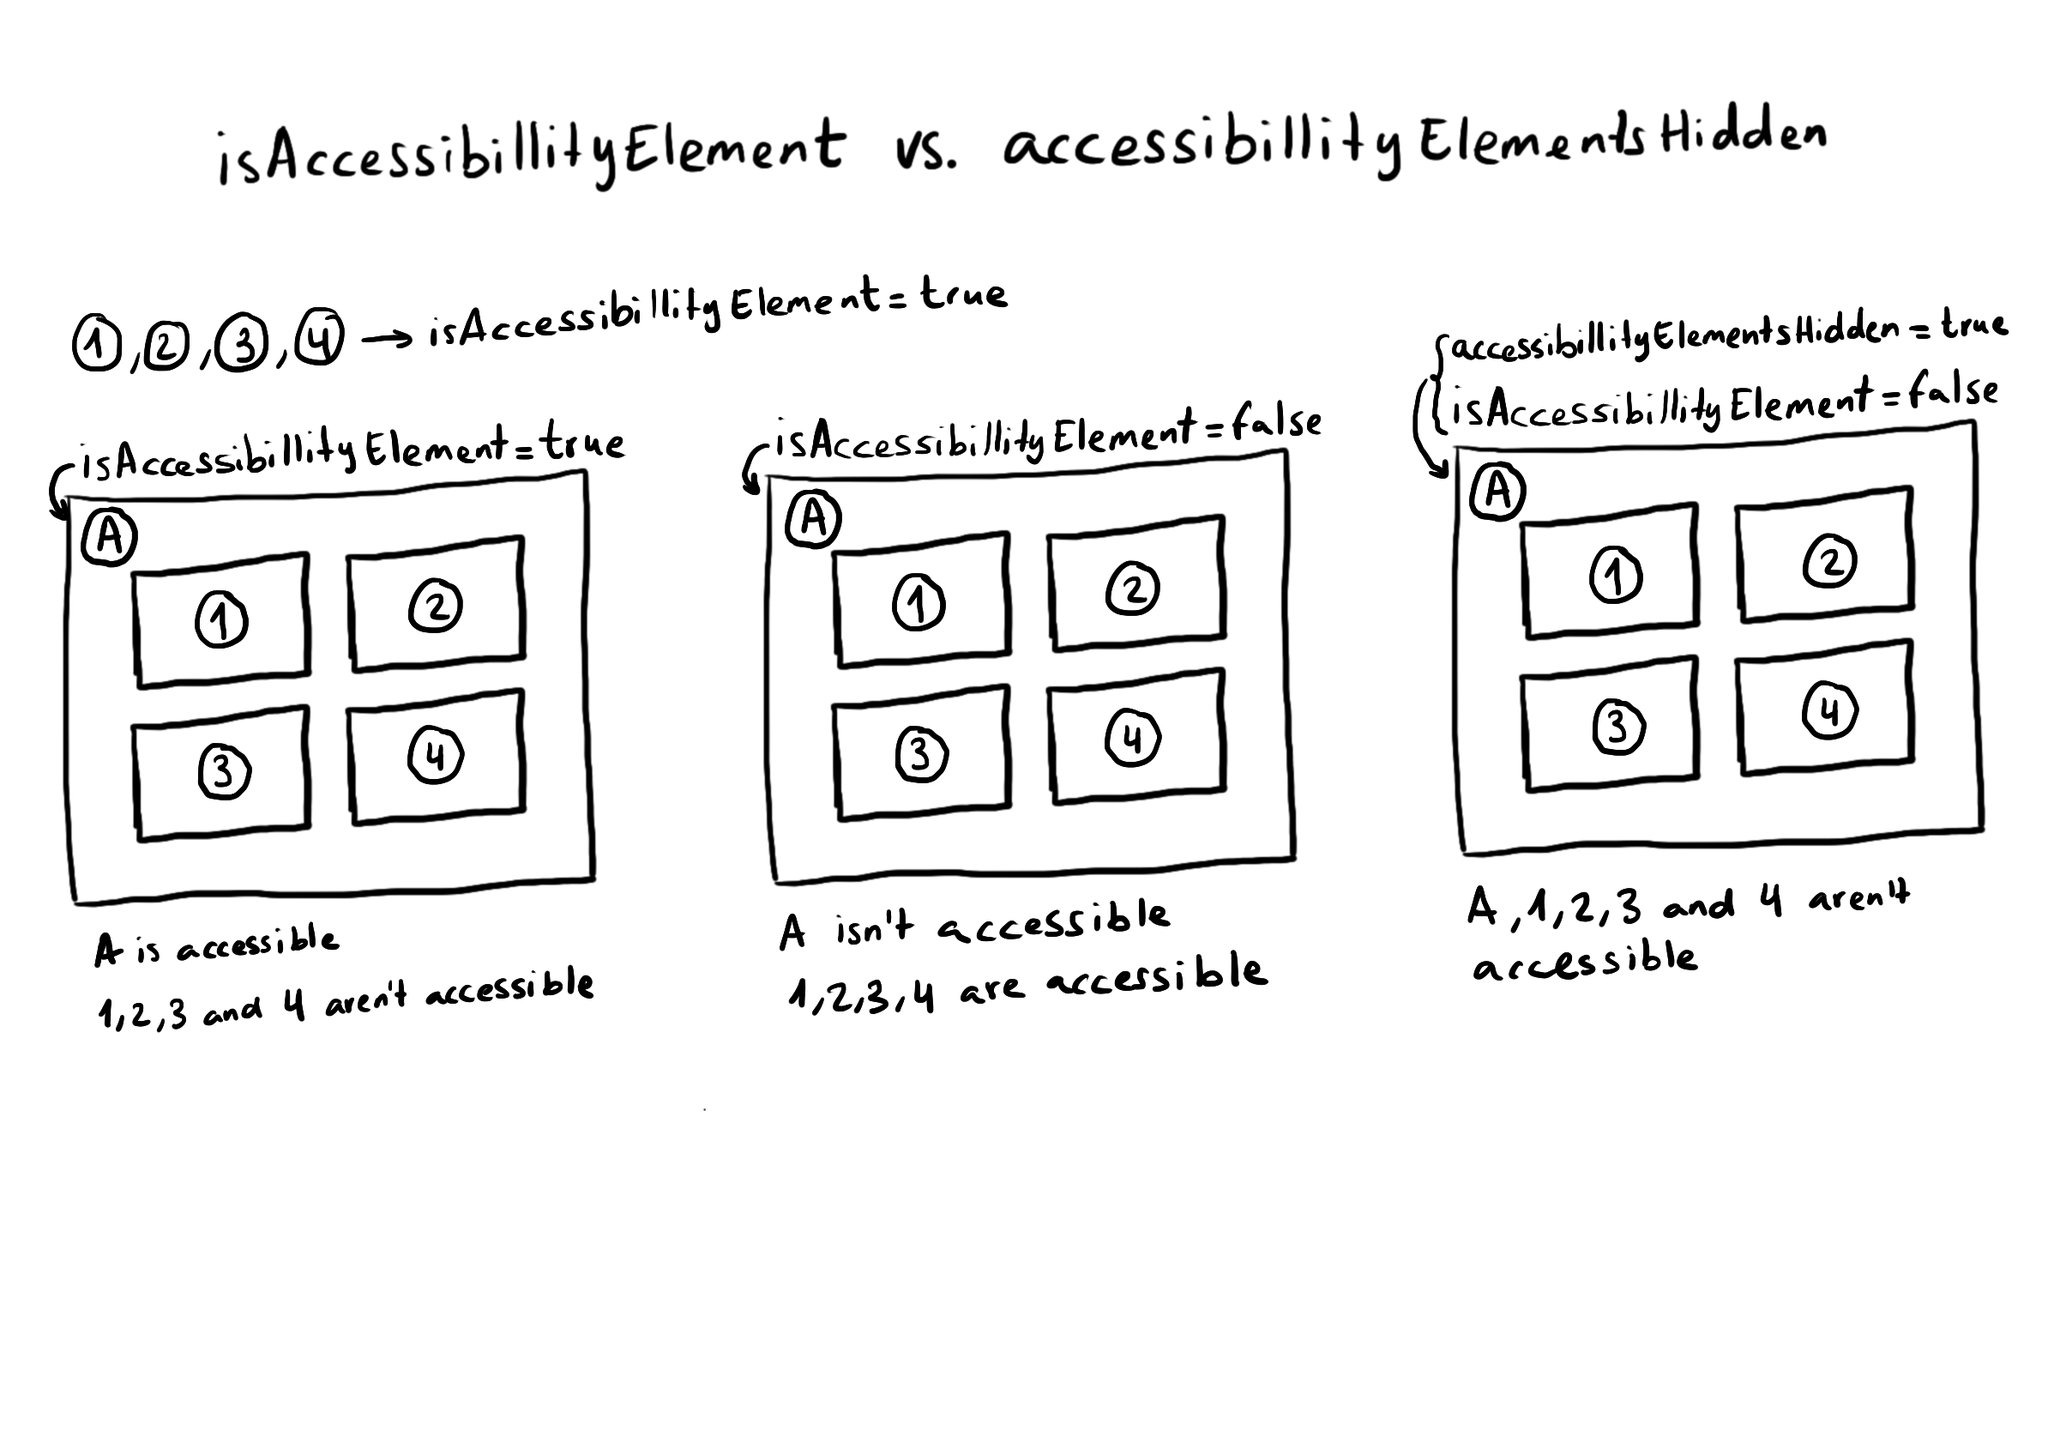 isAccessibillityElement vs. accessibillityElementsHidden
1, 2, 3, 4 → isAccessibillityElement = true
isAccessibillityElement = true
A
1 2
3 4
A is accessible
1,2,3 and 4 aren't accessible
isAccessibillityElement = false
A
1 2
3 4
A isn't accessible
1,2,3,4 are accessible
accessibillityElementsHidden = true
isAccessibillityElement = false
A
1 2
3 4
A, 1, 2, 3 and 4 aren't
accessible